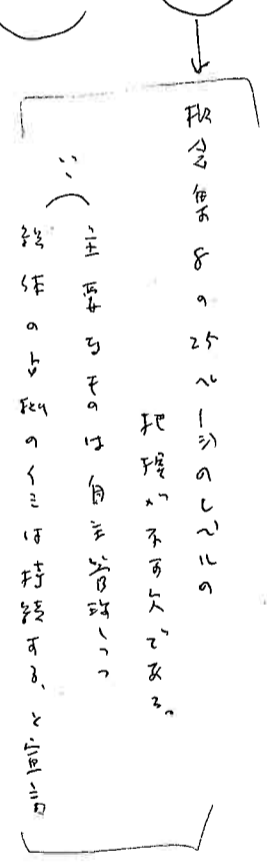 概念集8の25ページのレベルの
把握が不可欠である。
主要なものは自主管理しつつ
総体の占拠のイミは持続する、と宣言